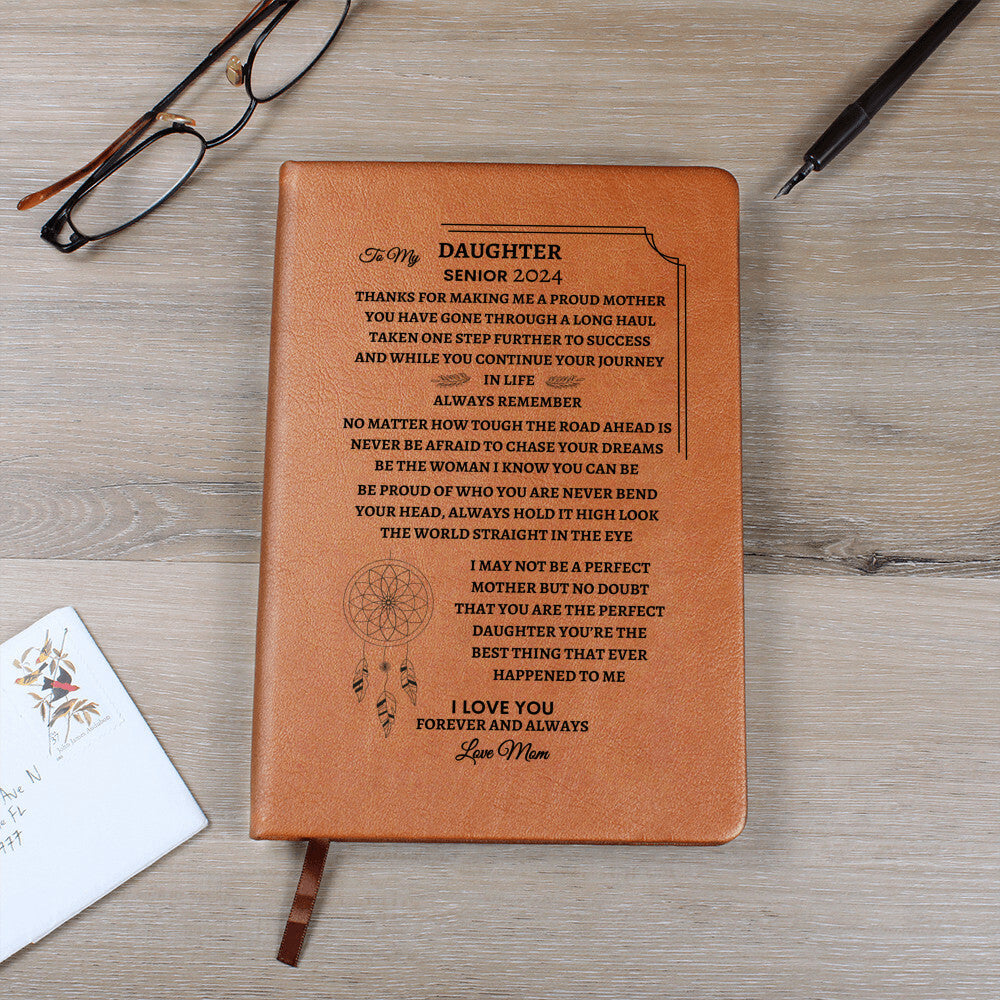 To My DAUGHTER
SENIOR 2024
THANKS FOR MAKING ME A PROUD MOTHER
YOU HAVE GONE THROUGH A LONG HAUL
TAKEN ONE STEP FURTHER TO SUCCESS
AND WHILE YOU CONTINUE YOUR JOURNEY
IN LIFE
ALWAYS REMEMBER
NO MATTER HOW TOUGH THE ROAD AHEAD IS
NEVER BE AFRAID TO CHASE YOUR DREAMS
BE THE WOMAN I KNOW YOU CAN BE
BE PROUD OF WHO YOU ARE NEVER BEND
YOUR HEAD, ALWAYS HOLD IT HIGH LOOK
THE WORLD STRAIGHT IN THE EYE
I MAY NOT BE A PERFECT
MOTHER BUT NO DOUBT
THAT YOU ARE THE PERFECT
DAUGHTER YOU'RE THE
BEST THING THAT EVER
HAPPENED TO ME
I LOVE YOU
FOREVER AND ALWAYS
Love Mom
37
John James Audubon
Ave N
FL
977